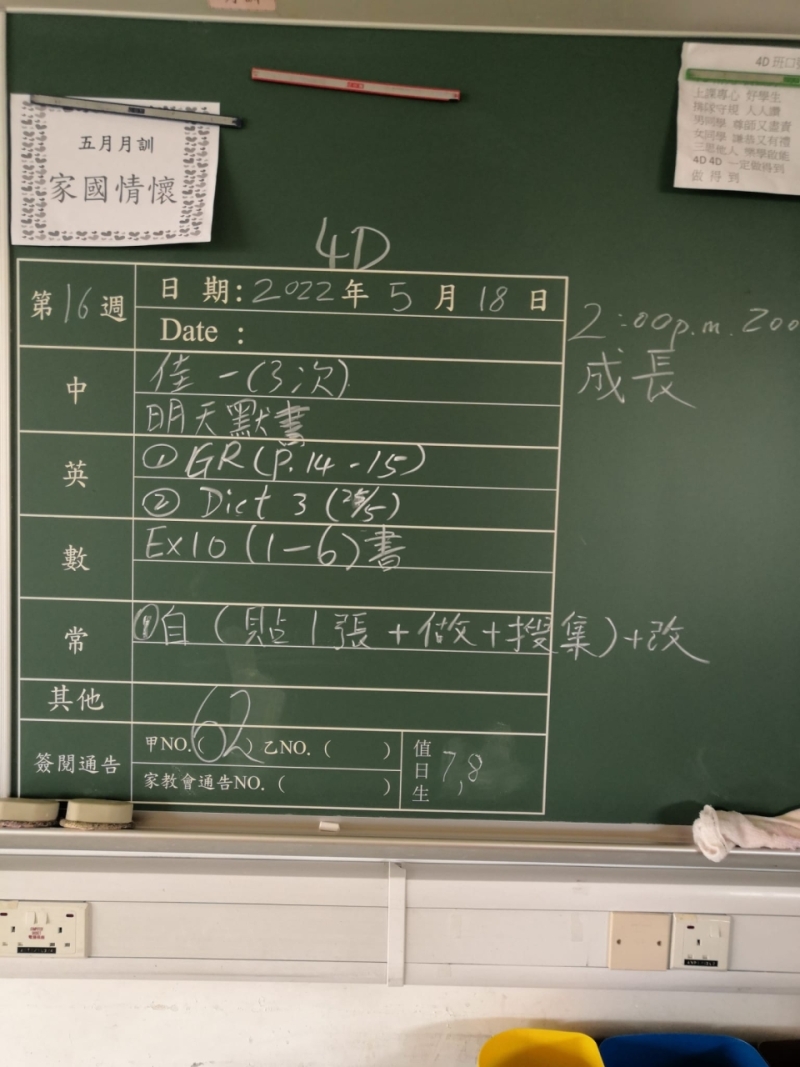 五月月訓
家國情懷
4D 班口號
上課專心 好學生
排隊守規 人人讚
男同學 尊師又盡責
女同學 謙恭又有禮
三思他人 樂學啟能
4D 4D 一定做得到
做 得 到
4D
第16週
日 期:2022年5月18日
Date :
中
佳一(3次)
明天默書
英
① GR(P.14-15)
② Dict 3 (25/5)
數
Ex10 (1-6)書
常
自(貼1張+做+搜集)+改
其他
簽閱通告
甲NO.(62)乙NO.( )
家教會通告NO.( )
值日生
7,8
2:00p.m. zoo
成長